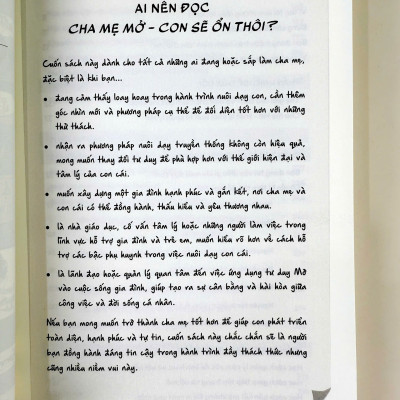 AI NÊN ĐỌC
CHA MẸ MỞ - CON SẼ ỔN THÔI?
Cuốn sách này dành cho tất cả những ai đang hoặc sắp làm cha mẹ,
đặc biệt là khi bạn...
• đang cảm thấy loay hoay trong hành trình nuôi dạy con, cần thêm
góc nhìn mới và phương pháp cụ thể để đối diện tốt hơn với những
thử thách.
• nhận ra phương pháp nuôi dạy truyền thống không còn hiệu quả,
mong muốn thay đổi tư duy để phù hợp hơn với thế giới hiện đại và
tâm lý của con cái.
• muốn xây dựng một gia đình hạnh phúc và gắn kết, nơi cha mẹ và
con cái có thể đồng hành, thấu hiểu và yêu thương nhau.
• là nhà giáo dục, cố vấn tâm lý hoặc những người làm việc trong
lĩnh vực hỗ trợ gia đình và trẻ em, muốn hiểu rõ hơn về cách hỗ
trợ các bậc phụ huynh trong việc nuôi dạy con cái.
• là lãnh đạo hoặc quản lý quan tâm đến việc ứng dụng tư duy Mở
vào cuộc sống gia đình, giúp tạo ra sự cân bằng và hài hòa giữa
công việc và đời sống cá nhân.
Nếu bạn mong muốn trở thành cha mẹ tốt hơn để giúp con phát triển
toàn diện, hạnh phúc và tự tin, cuốn sách này chắc chắn sẽ là người
bạn đồng hành đáng tin cậy trong hành trình đầy thách thức nhưng
cũng nhiều niềm vui này.